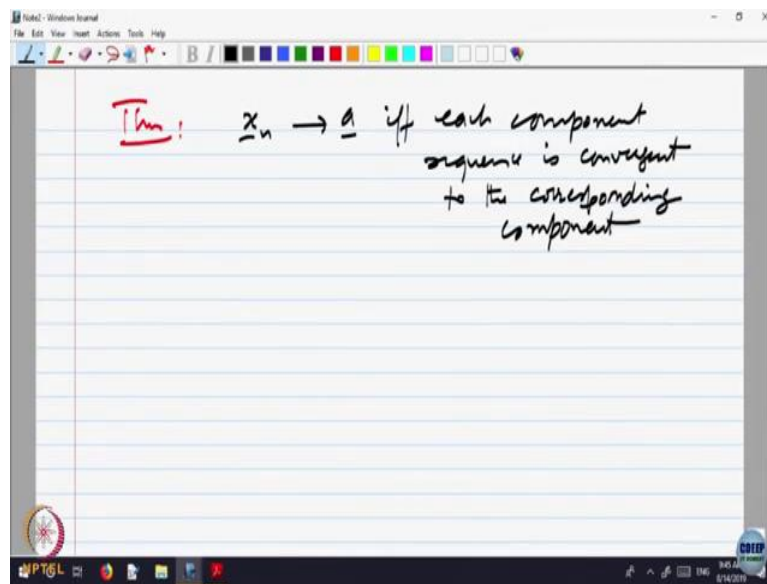 Note2 - Windows Journal
File Edit View Insert Actions Tools Help
B I
Thm: x_n → a iff each component
sequence is convergent
to the corresponding
component
NPTEL
CDEEP
ENG
9:45 AM
8/14/2019